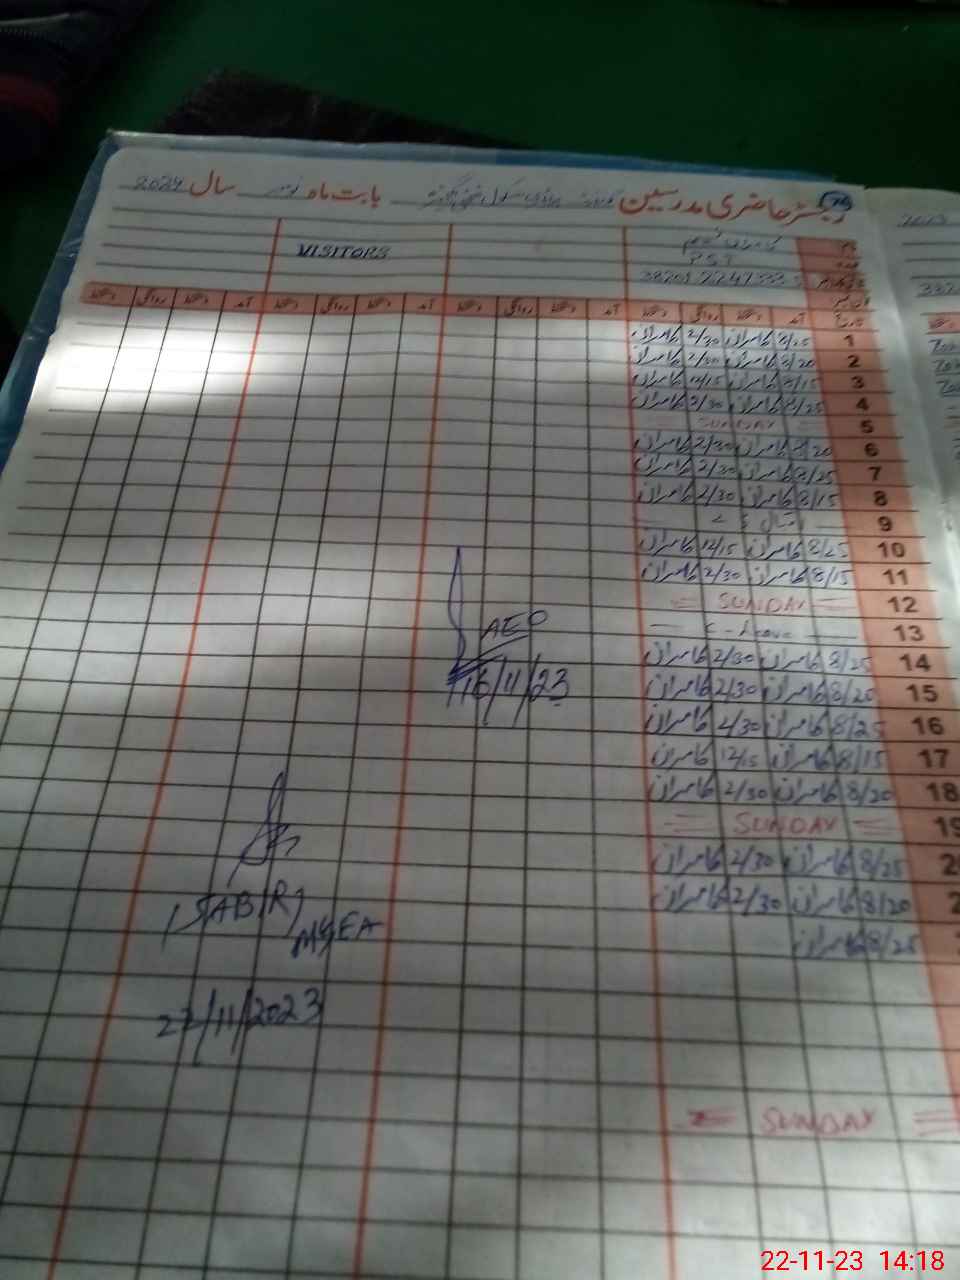 رجسٹر حاضری مدرسین گورنمنٹ پرائمری سکول بابت ماہ نومبر سال 2024
VISITORS
PST
آمد دستخط روانگی دستخط آمد دستخط روانگی دستخط آمد دستخط روانگی دستخط آمد دستخط روانگی دستخط
1 8/25 کامران 2/30 کامران
2 8/20 کامران 2/30 کامران
3 8/15 کامران 12/15 کامران
4 8/25 کامران 2/30 کامران
5 SUNDAY
6 8/20 کامران 2/30 کامران
7 8/25 کامران 2/30 کامران
8 8/15 کامران 2/30 کامران
9 اقبال ڈے
10 8/25 کامران 12/15 کامران
11 8/15 کامران 2/30 کامران
12 = SUNDAY =
13 C - Leave
14 8/25 کامران 2/30 کامران
15 8/20 کامران 2/30 کامران
16 8/25 کامران 2/30 کامران
17 8/15 کامران 12/15 کامران
18 8/20 کامران 2/30 کامران
19 = SUNDAY =
8/25 کامران 2/30 کامران
8/20 کامران 2/30 کامران
8/25 کامران
= SUNDAY =
AEO
16/11/23
(SABIR)
MEA
22/11/2023
2023
22-11-23 14:18